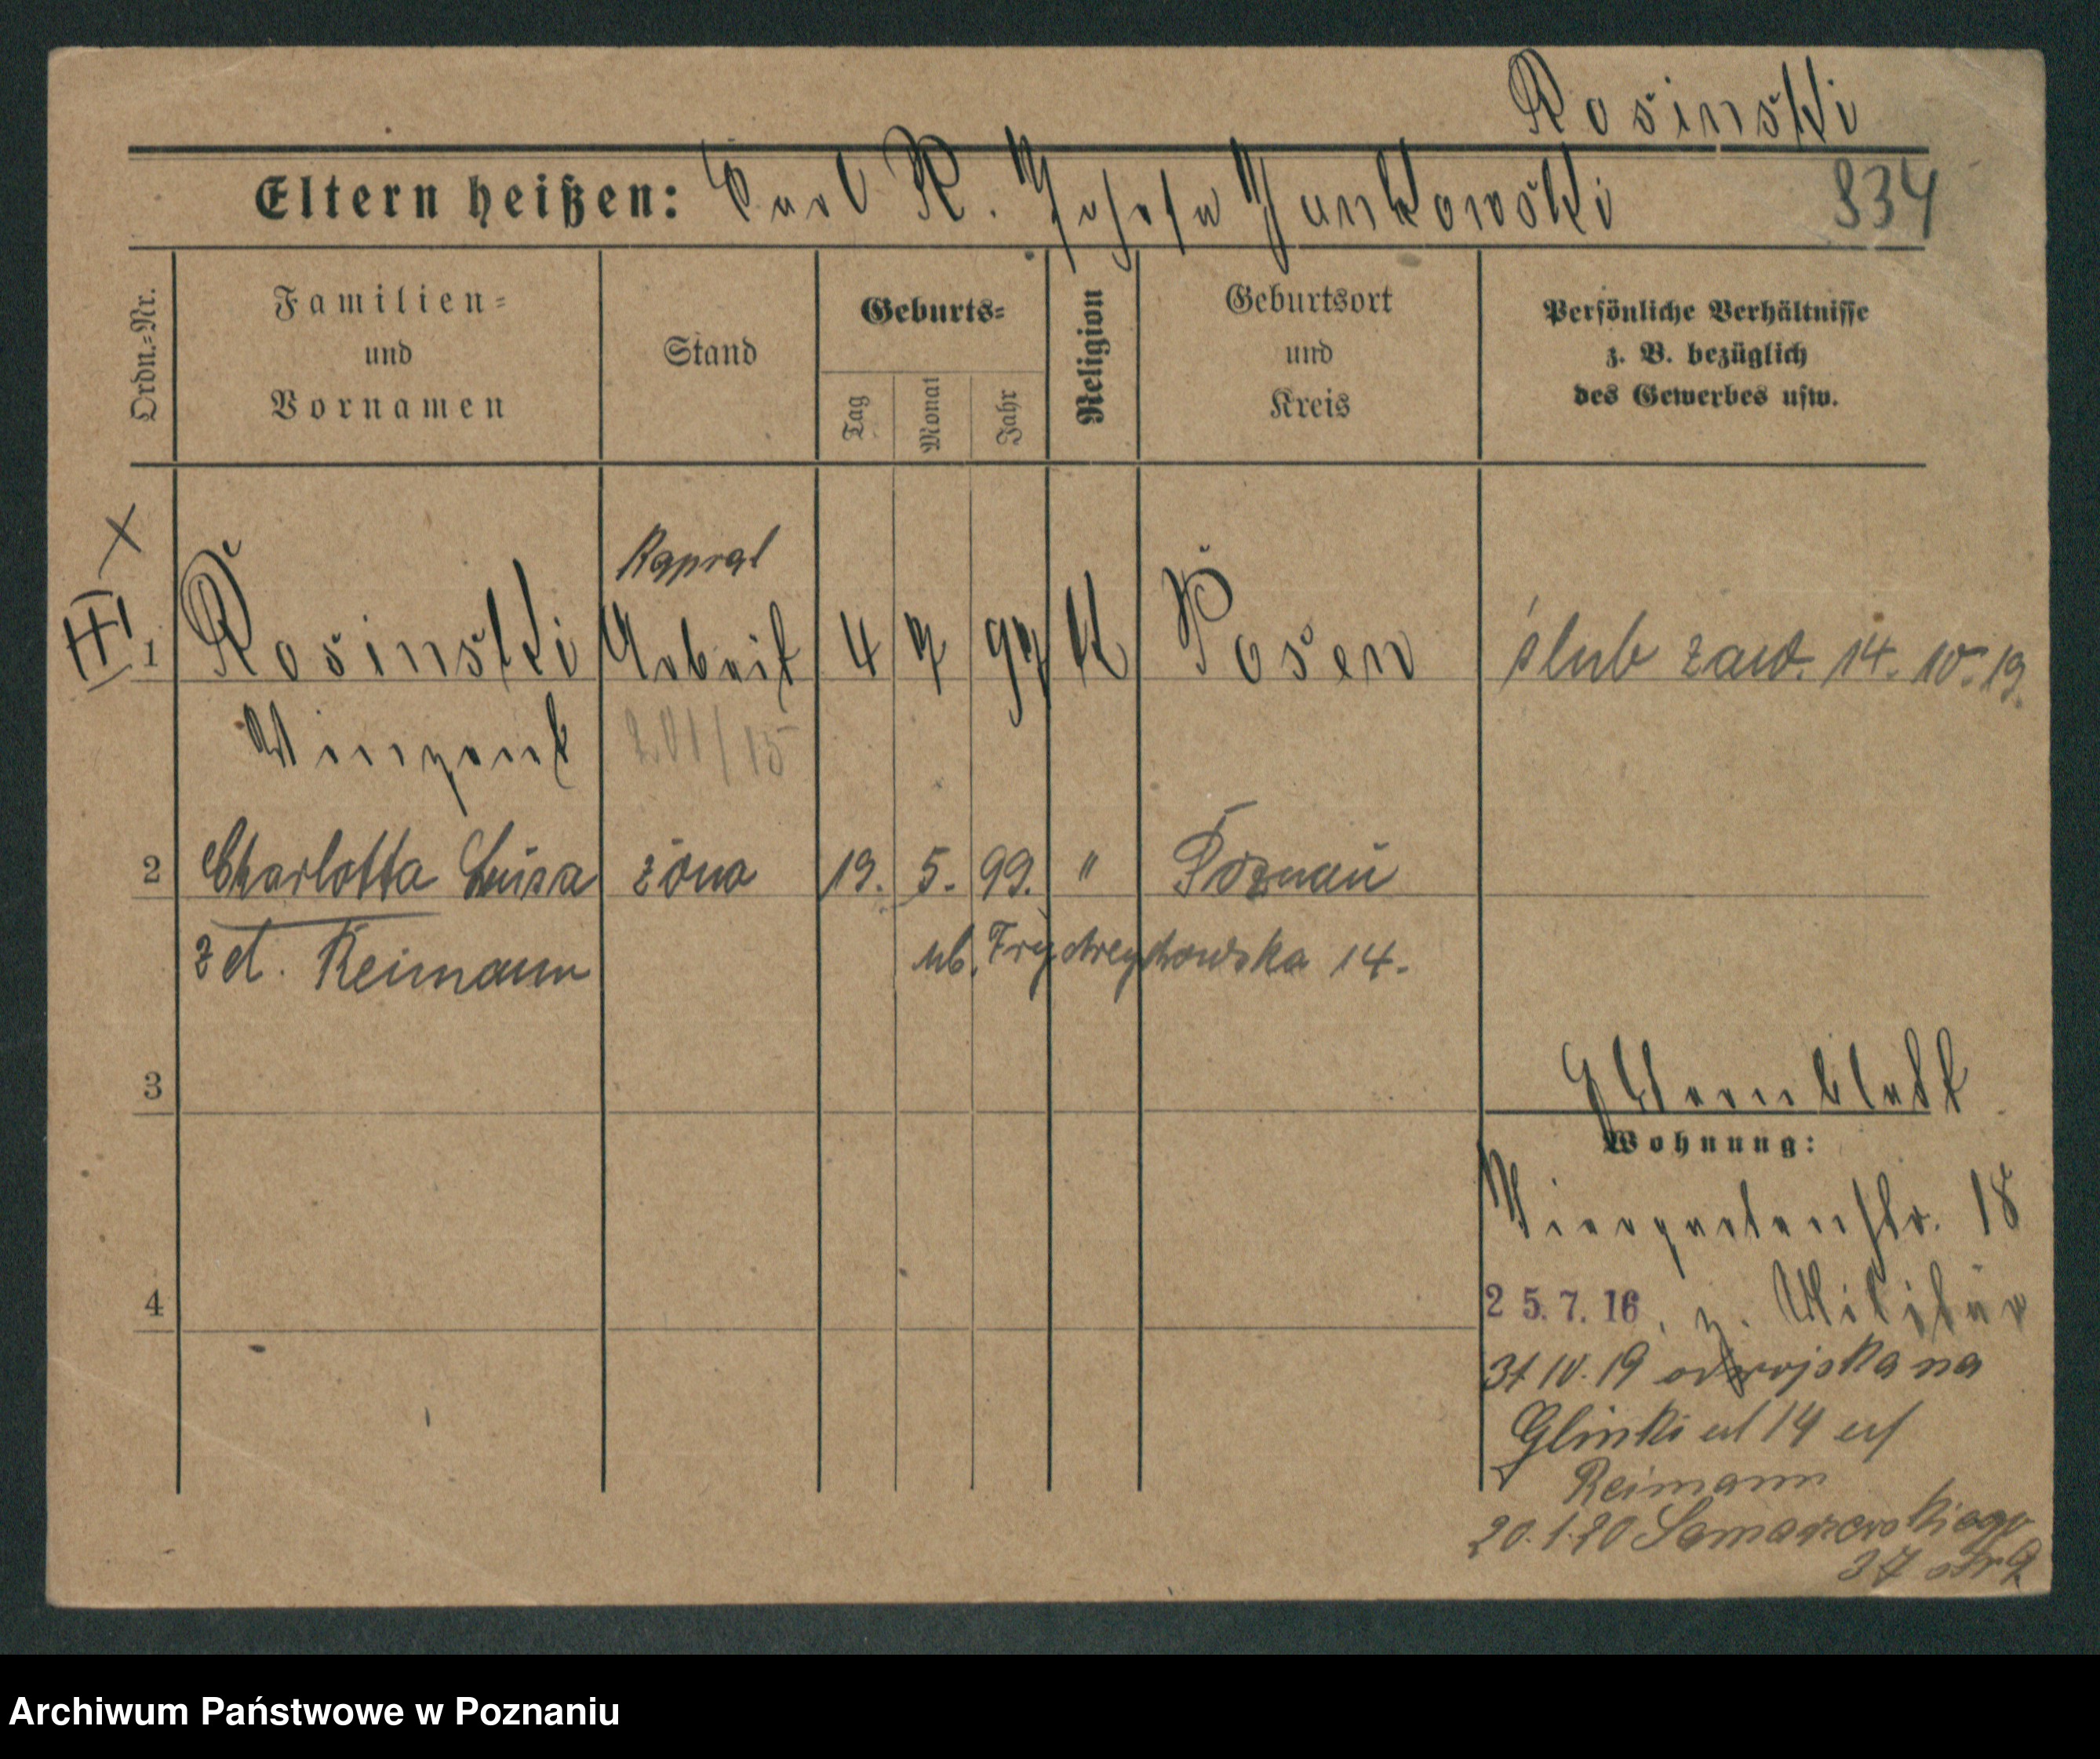 Rosinski
Eltern heißen: Carl R. Josefa Jankowski 834
Ordn.-Nr.
Familien-
und
Vornamen
Stand
Geburts-
Tag
Monat
Jahr
Religion
Geburtsort
und
Kreis
Persönliche Verhältnisse
z. B. bezüglich
des Gewerbes usw.
Kapral
1 Rosinski Arbeit 4 7 97 K Posen ślub zaw. 14. 10. 19.
Vinzent 201/15
2 Charlotta Luisa żona 19. 5. 99. " Poznań
z d. Reimann ul. Frydrychowska 14.
3
Elternblatt
Wohnung:
Tiergartenstr. 18
4
25.7.16, z. Militär
31 10. 19 od wojska na
Glinki 14
Reimann
20.1.20 Samarzewskiego
37
Archiwum Państwowe w Poznaniu